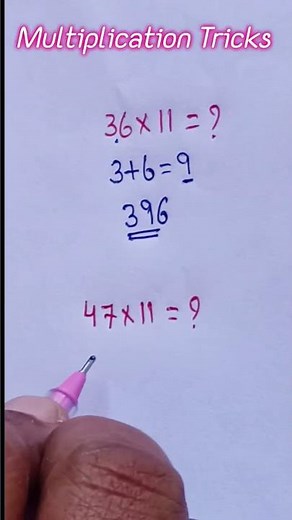 Multiplication Tricks
36×11=?
3+6=9
396
47×11=?